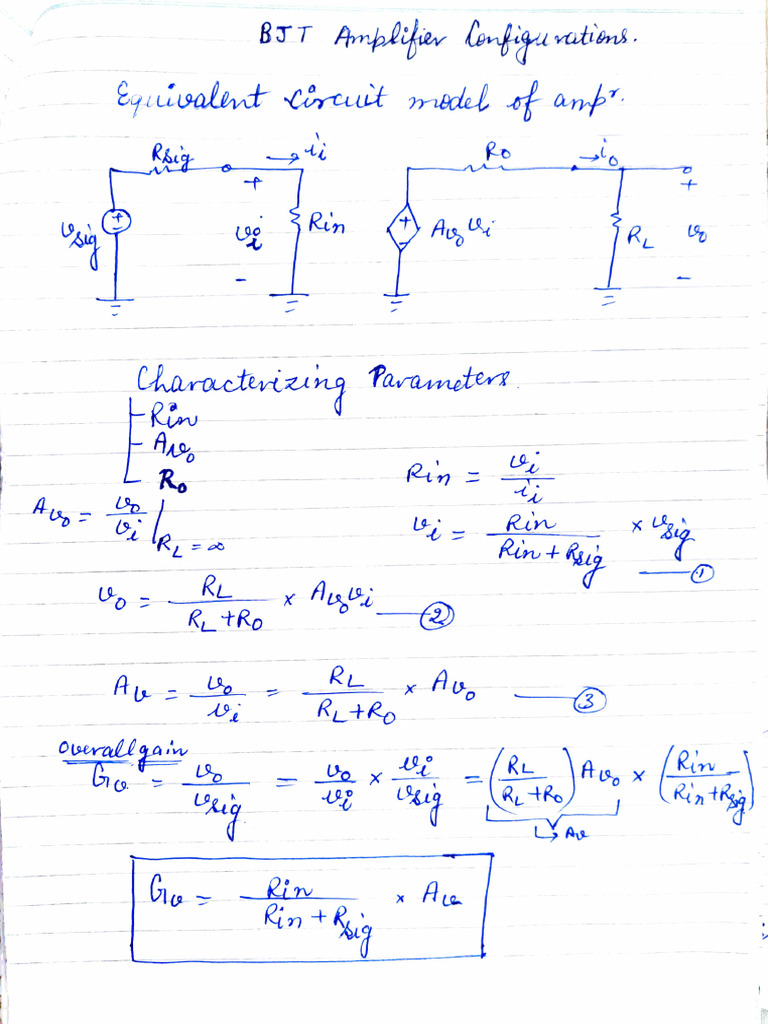 BJT Amplifier Configurations.
Equivalent circuit model of ampr.
Rsig ii Ro io
+ +
vsig + - vi Rin + - Avo vi RL vo
- -
Characterizing Parameters
Rin
Avo
Ro
Rin = vi / ii
Avo = vo / vi | RL = ∞
vi = Rin / (Rin + Rsig) × vsig — ①
vo = RL / (RL + Ro) × Avo vi — ②
Av = vo / vi = RL / (RL + Ro) × Avo — ③
overall gain
Gv = vo / vsig = vo / vi × vi / vsig = (RL / (RL + Ro)) Avo × (Rin / (Rin + Rsig))
↳ Av
Gv = Rin / (Rin + Rsig) × Av